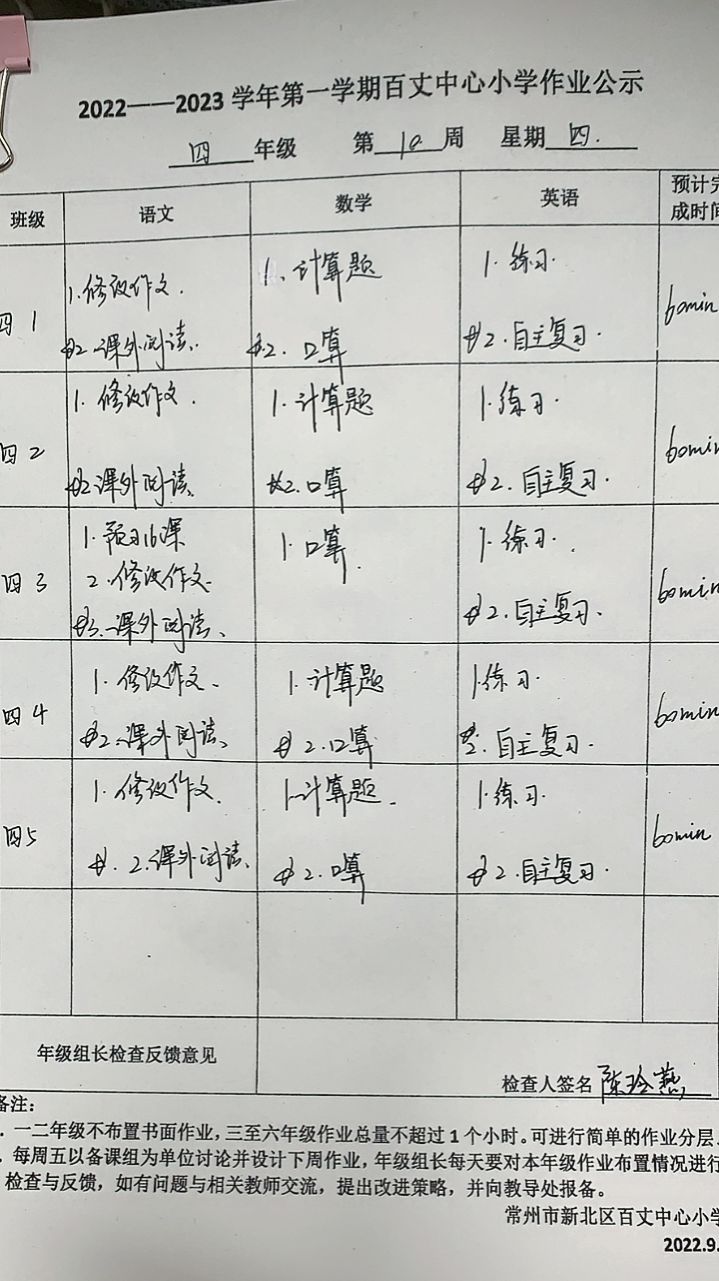 2022——2023 学年第一学期百丈中心小学作业公示
四 年级 第 10 周 星期 四.
班级 语文 数学 英语 预计完
成时间
四 1 1.修改作文. 1、计算题 1.练习.
2.课外阅读. 2.口算 2.自主复习. 60min
四 2 1.修改作文. 1.计算题 1.练习.
2.课外阅读、 2.口算 2.自主复习. 60min
四 3 1.预习16课 1.口算. 1.练习.
2.修改作文.
3.课外阅读、 2.自主复习. 60min
四 4 1.修改作文、 1.计算题 1.练习.
2.课外阅读、 2.口算 2.自主复习. 60min
四5 1.修改作文. 1.计算题. 1.练习.
2.课外阅读. 2.口算 2.自主复习. 60min
年级组长检查反馈意见
检查人签名 陈玲燕
备注:
. 一二年级不布置书面作业,三至六年级作业总量不超过 1 个小时。可进行简单的作业分层。
. 每周五以备课组为单位讨论并设计下周作业,年级组长每天要对本年级作业布置情况进行
检查与反馈,如有问题与相关教师交流,提出改进策略,并向教导处报备。
常州市新北区百丈中心小学
2022.9.